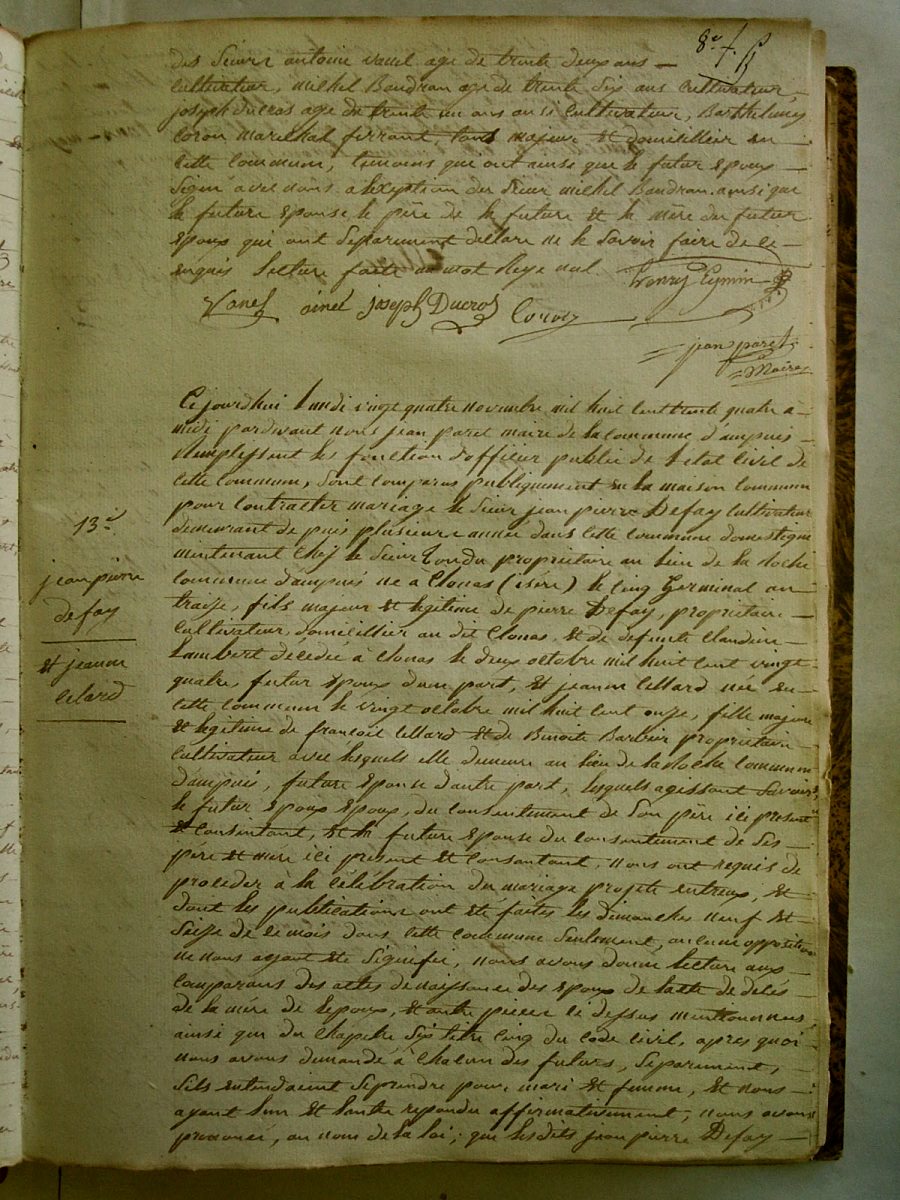 8e f. 
des sieurs antoine vanel age de trente deux ans —
cultivateur, michel Baudran age de trente six ans cultivateur —
joseph ducros age de trente un ans aussi cultivateur, Barthelemy
coron marechal ferrant, tous majeur et domicillier en
cette commune, temoins qui ont ainsi que le futur epoux —
signé avec nous a l'exeption du sieur michel Baudran. ainsi que
la future epouse, le père de la future et la mère du futur
epoux qui ont separement declare ne le savoir faire de ce —
enquis lecture faite un mot Reye nul.
Vanel ainé joseph Ducros Coron
jean paret
Maire
Ce jourd'hui lundi vingt quatre novembre mil huit cent trente quatre a —
midi pardevant nous jean paret maire de la commune d'ampuis —
Remplissent les fonction d'officier public de l'etat civil de
cette commune, sont comparus publiquement en la maison commune
pour contracter mariage le sieur jean pierre Defay cultivateur
demeurant de puis plusieure année dans cette commune domestique
maintenant chez le sieur proprietaire au lieu de la roche
commune d'ampuis né à Clonas (isere) le cinq Germinal an
traise, fils majeur et legitime de pierre Defay, proprietaire
cultivateur, domicillier au dit Clonas, et de defunte Claudine —
Lambert decedée à clonas le deux octobre mil huit cent vingt
quatre, futur epoux d'une part, et jeanne cellard née en —
cette commune le vingt octobre mil huit cent onze, fille majeure
et legitime de francois cellard et de Benoite Barbier proprietaire
cultivateur avec lesquels elle demeure au lieu de la Roche commune
d'ampuis, future epouse d'autre part, lesquels agissant savoir
le futur epoux epoux, du consentement de son père ici present
et consintant, et la future epouse du consentement de ses —
père et mere ici present et consantant, nous ont requis de
proceder à la célébration du mariage projeté entreux, et —
dont les publications ont été faites les dimanches neuf et —
seise de ce mois dans cette commune seulement, aucune opposition
ne nous ayant ete signifié, nous avons donné lecture aux —
comparans des actes de naissance des epoux de l'acte de décés —
de la mère de l'epoux, et autre pieces ci dessus mentionnées,
ainsi que du chapitre six titre cinq du code civil, apres quoi
nous avons demandé à chacun des futurs, separement,
s'ils entendaient se prendre pour mari et femme, et nous —
ayant l'un et l'autre repondu affirmativement, nous avons
prononcé, au nom de la loi, que lesdits jean pierre Defay —
13e
jean pierre
defay
et jeanne
celard